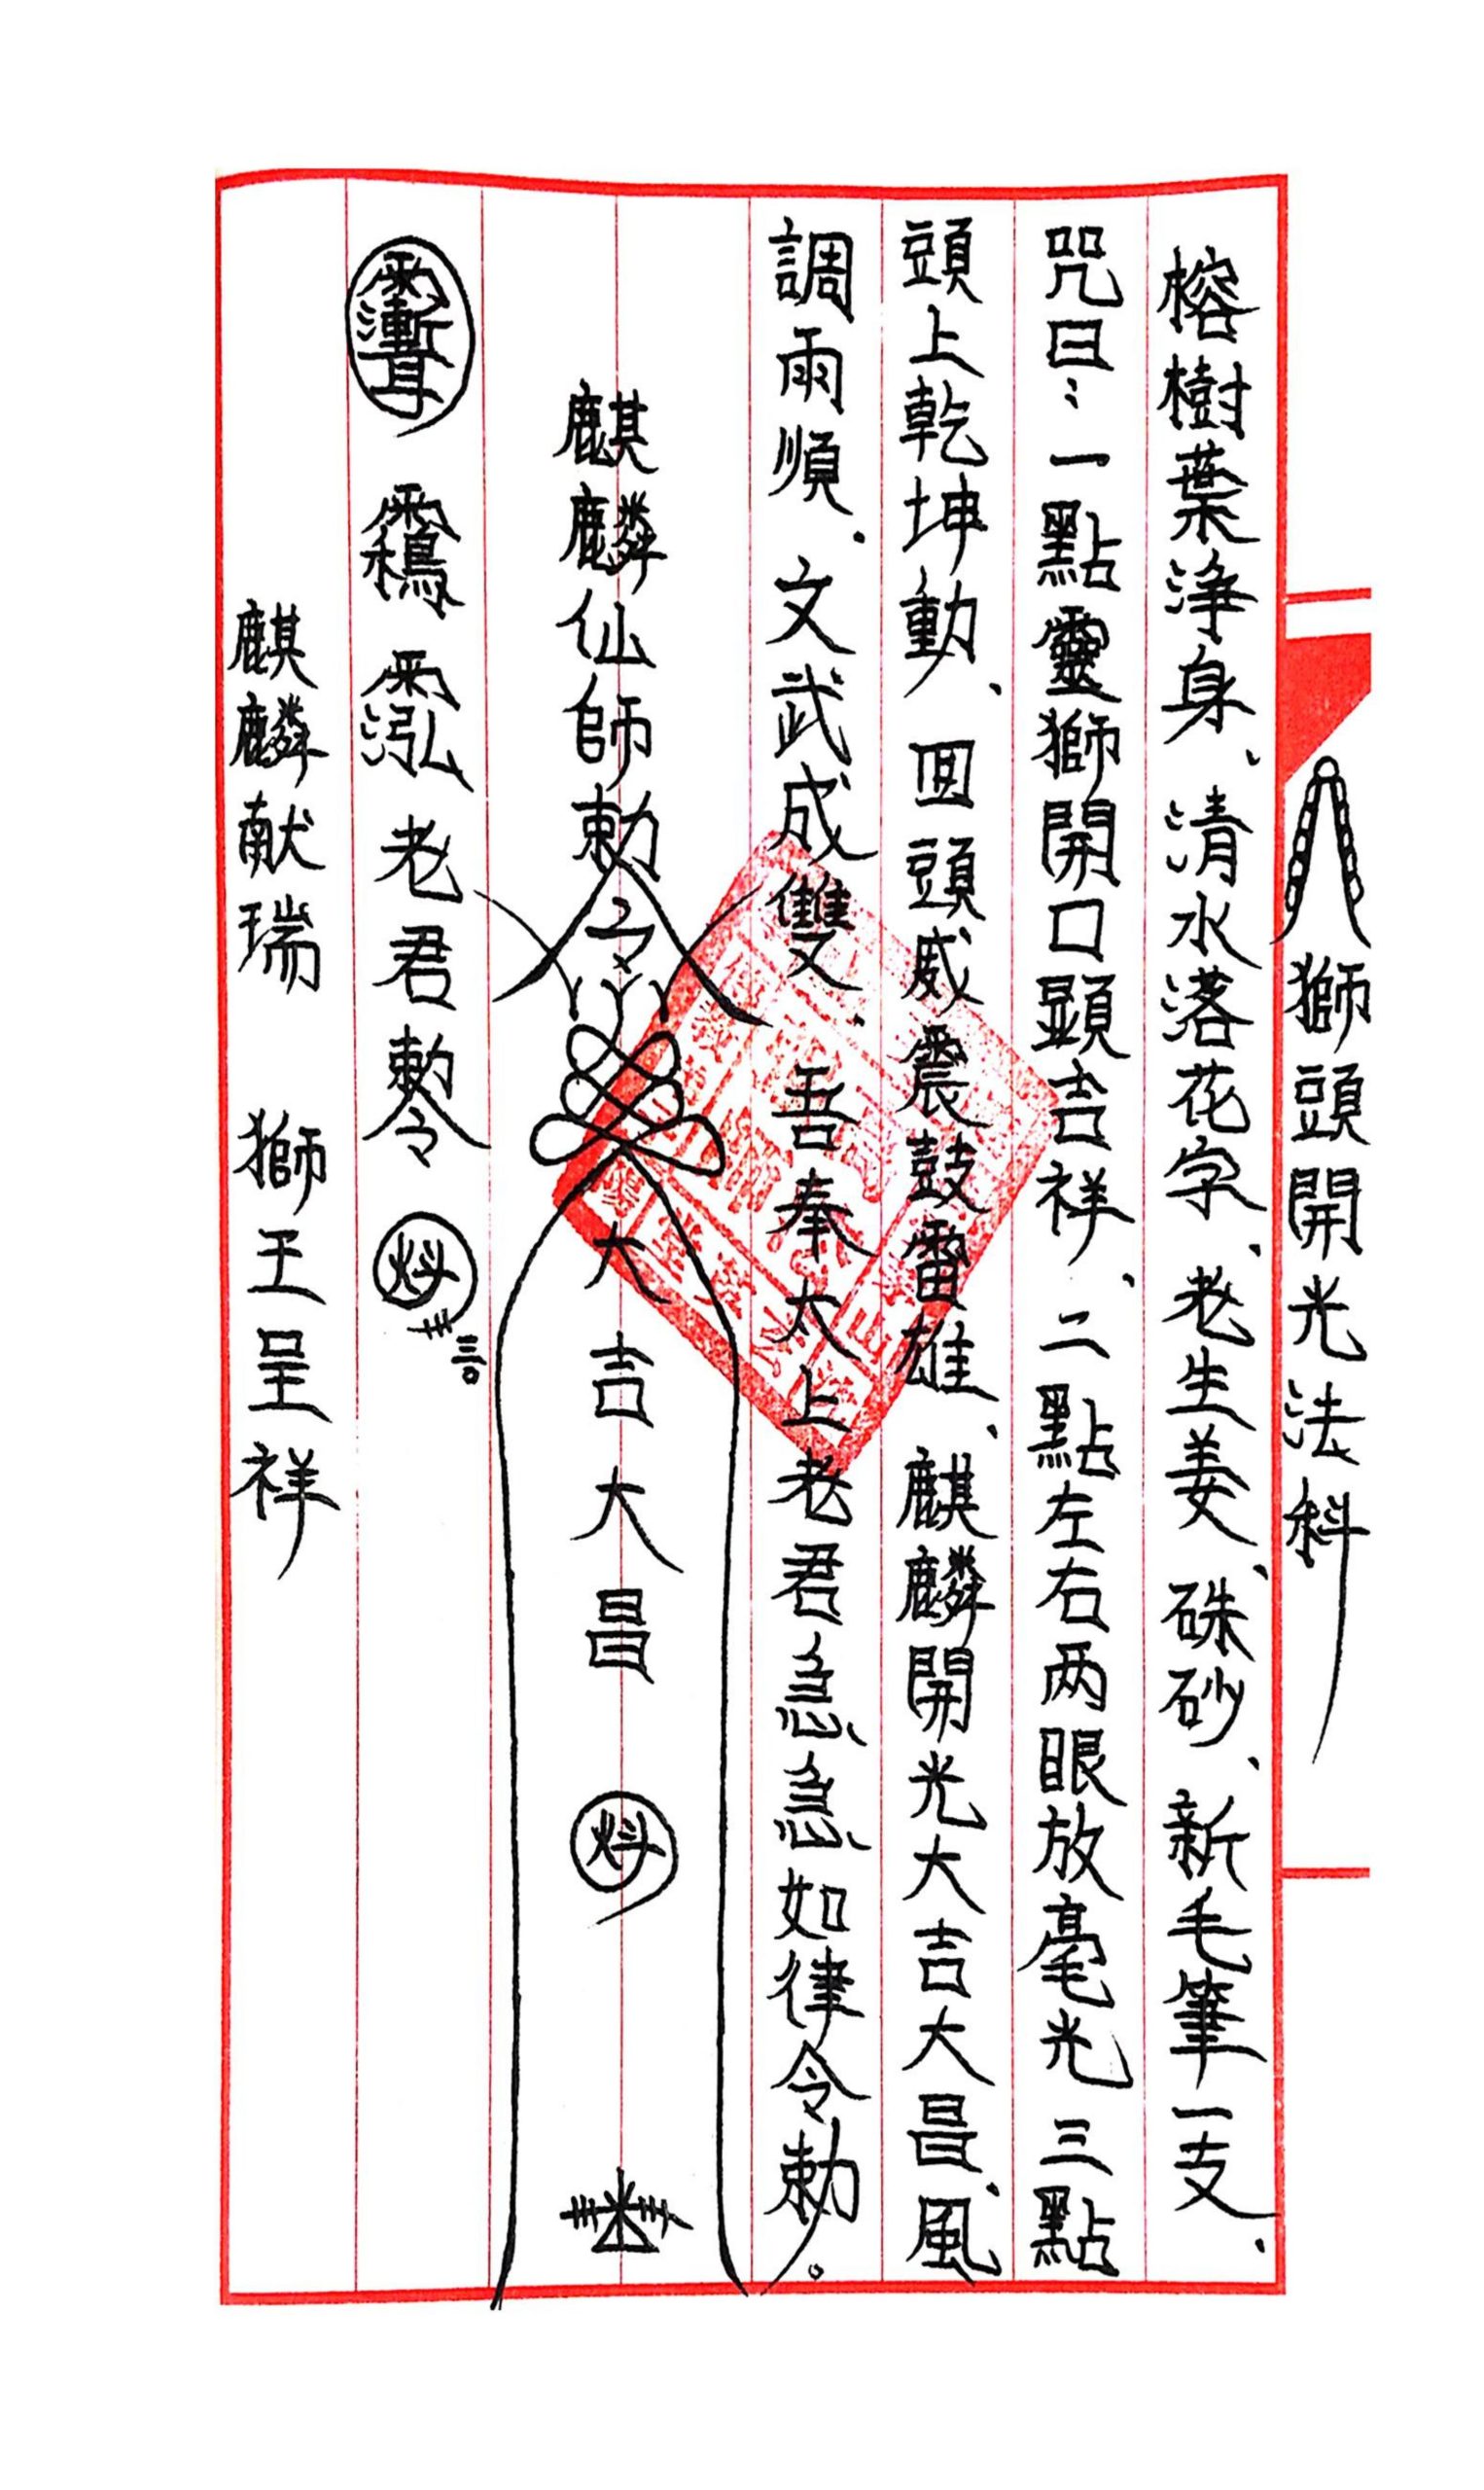 獅頭開光法科
榕樹葉淨身、清水落花字、老生姜、硃砂、新毛筆一支.
咒曰:一點靈獅開口顕吉祥、二點左右两眼放毫光三點
頭上乾坤動、回頭威震鼓雷雄、麒麟開光大吉大昌、風
調雨順.文武成雙.吾奉太上老君急急如律令勅。
麒麟仙師勅令
大吉大昌
老君勅令
麒麟献瑞 獅王呈祥